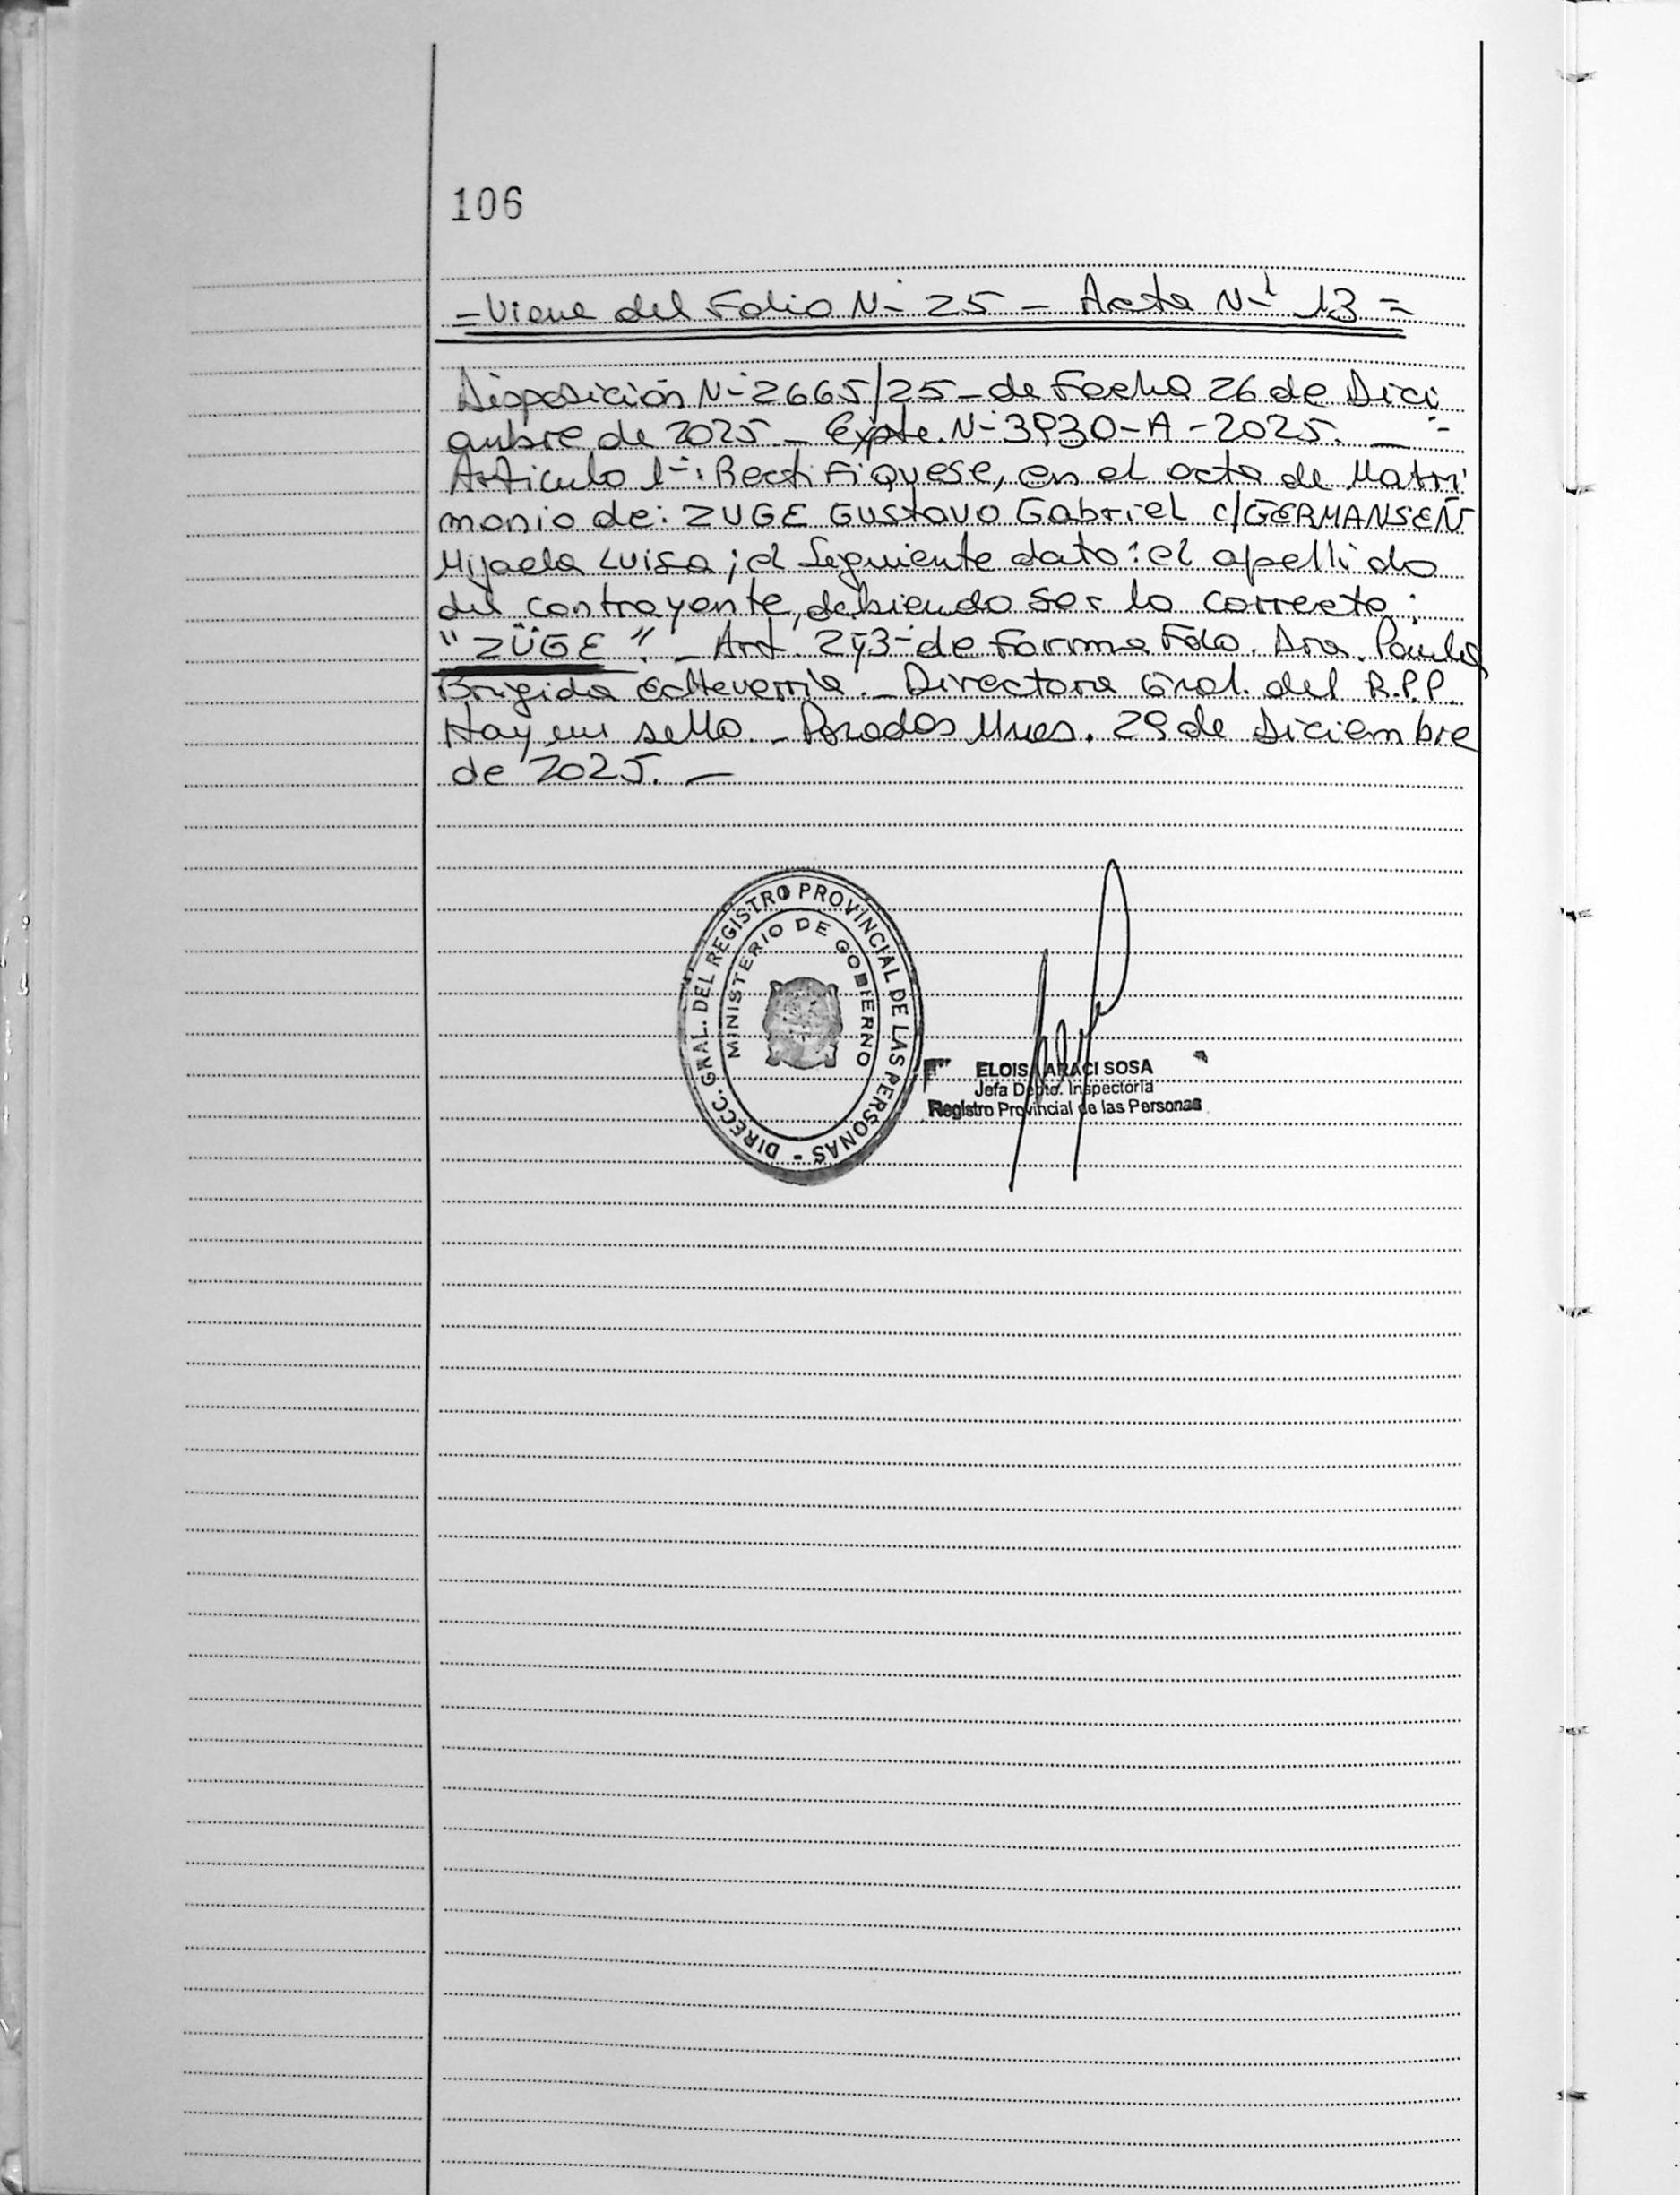 106
- Viene del Folio N- 25 - Acta N- 13 =
Disposición N- 2665/25 - de Fecha 26 de Dici
embre de 2025 - Expte. N- 3930-A-2025. -
Articulo 1-: Rectifiquese, en el acta de Matri
monio de: ZUGE Gustavo Gabriel c/GERMANSEN
Mijaela Luisa; el Seguiente dato: el apellido
del contrayente, debiendo ser lo correcto:
"ZÜGE". - Art. 2y3- de Forma Fdo. Dra. Paula
Brigida Echeverria. - Directora Gral. del R.P.P.
Hay un sello. - Posadas Mnes. 29 de Diciembre
de 2025. -
DIRECC. GRAL. DEL REGISTRO PROVINCIAL DE LAS PERSONAS -
MINISTERIO DE GOBIERNO
ELOISA ARACI SOSA
Jefa Dpto. Inspectoria
Registro Provincial de las Personas